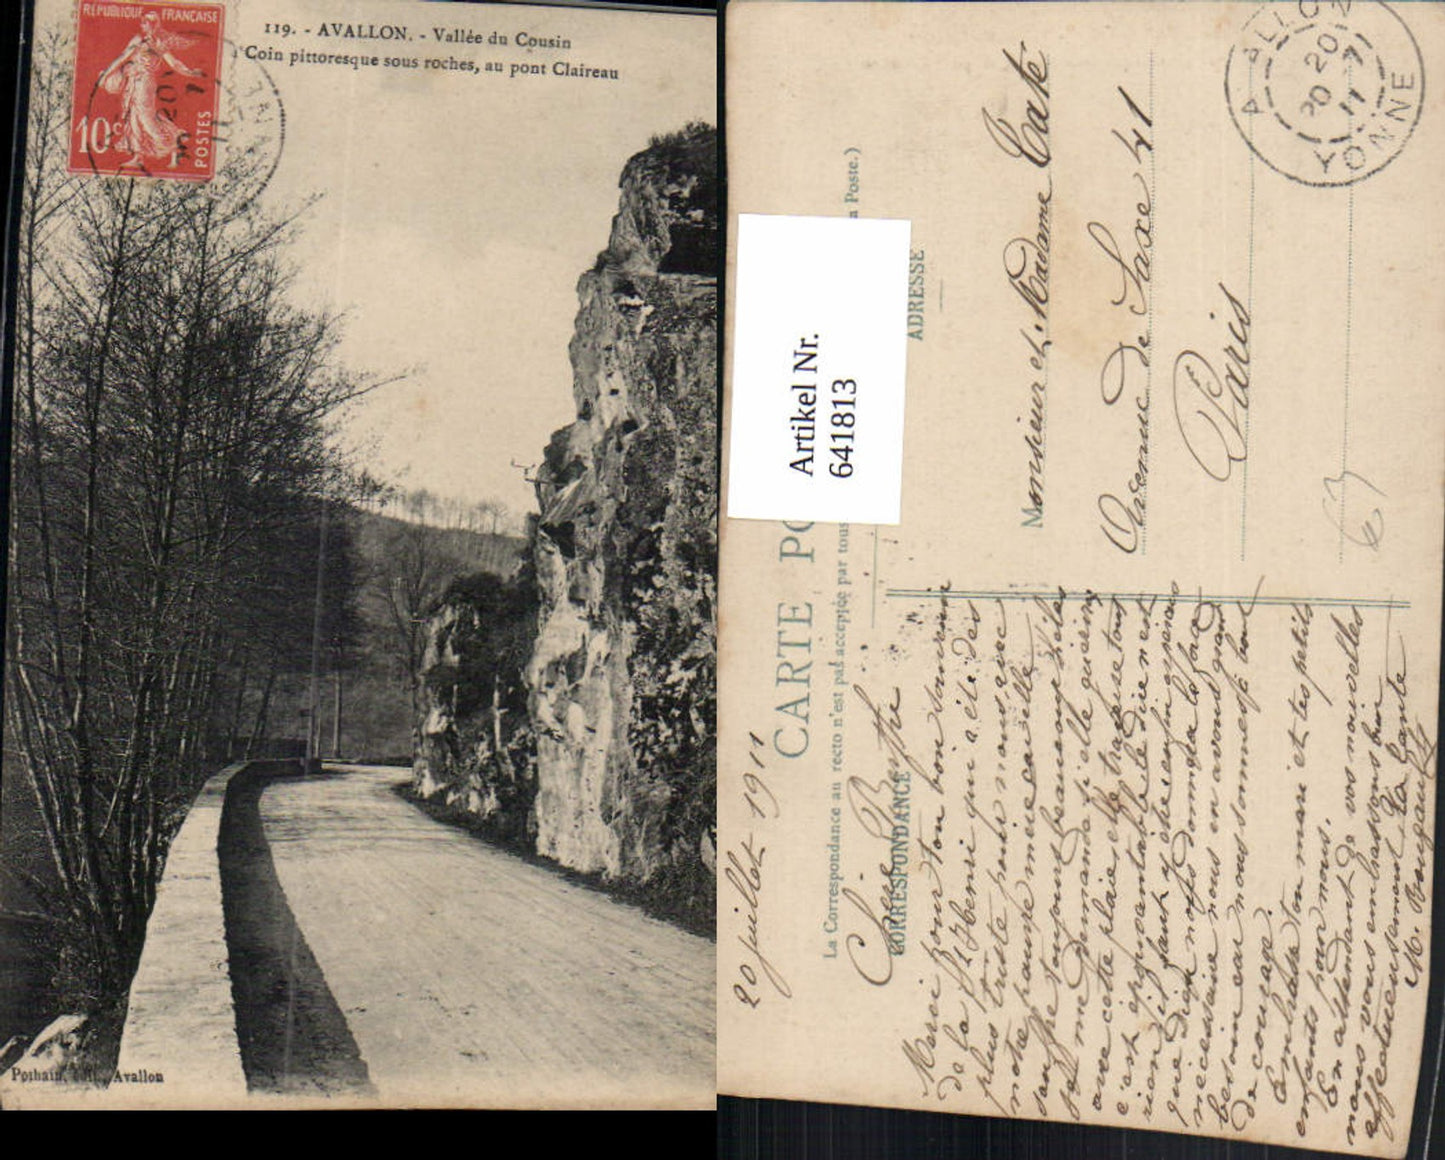 RÉPUBLIQUE FRANÇAISE
10c
POSTES
119. - AVALLON. - Vallée du Cousin
Coin pittoresque sous roches, au pont Claireau
Pothain, édit., Avallon
AVALLON
20 12
20 7
11
YONNE
Artikel Nr.
641813
CARTE PO
La Correspondance au recto n'est pas acceptée par tous
a Poste.)
CORRESPONDANCE
ADRESSE
Monsieur et Madame Tate
Avenue de Saxe 41
Paris
63
20 juillet 1911
Chère Berthe
Merci pour ton bon souvenir
de la St Henri qui a été des
plus triste pour nous, avec
notre pauvre mère car elle
souffre toujours beaucoup et elle
me demande si elle guérira
avec cette plaie, elle tracasse tous
c'est épouvantable te dire n'est
rien il faut y être enfin espérons
que Dieu nous donnera la force
nécessaire nous en avons grand
besoin car nous sommes à bout
de courage.
Embrasse ton mari et tes petits
enfants pour nous.
En attendant de vos nouvelles
nous vous embrassons bien
affectueusement Ta tante
M. Bougault